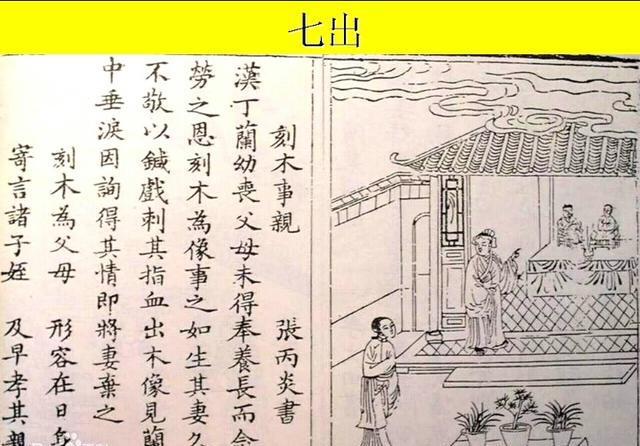 七出
刻木事親　張丙炎書
漢丁蘭幼喪父母未得奉養長而念
勞之恩刻木為像事之如生其妻久
不敬以鍼戲刺其指血出木像見蘭
中垂淚因詢得其情即將妻棄之
刻木為父母　形容在日身
寄言諸子姪　及早孝其親